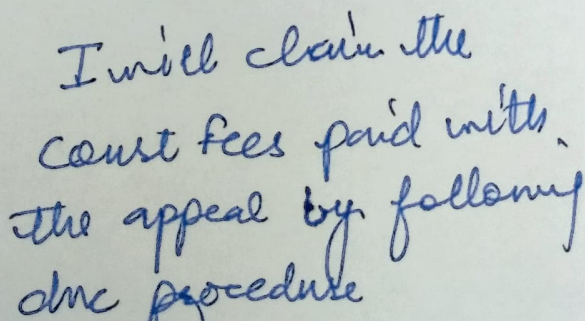 I will claim the
Court fees paid with
the appeal by following
due procedure